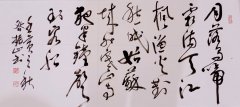 月落烏啼
霜滿天江
楓漁火對
愁眠姑蘇
城外寒山寺
夜半鐘聲
到客船
壬寅之秋